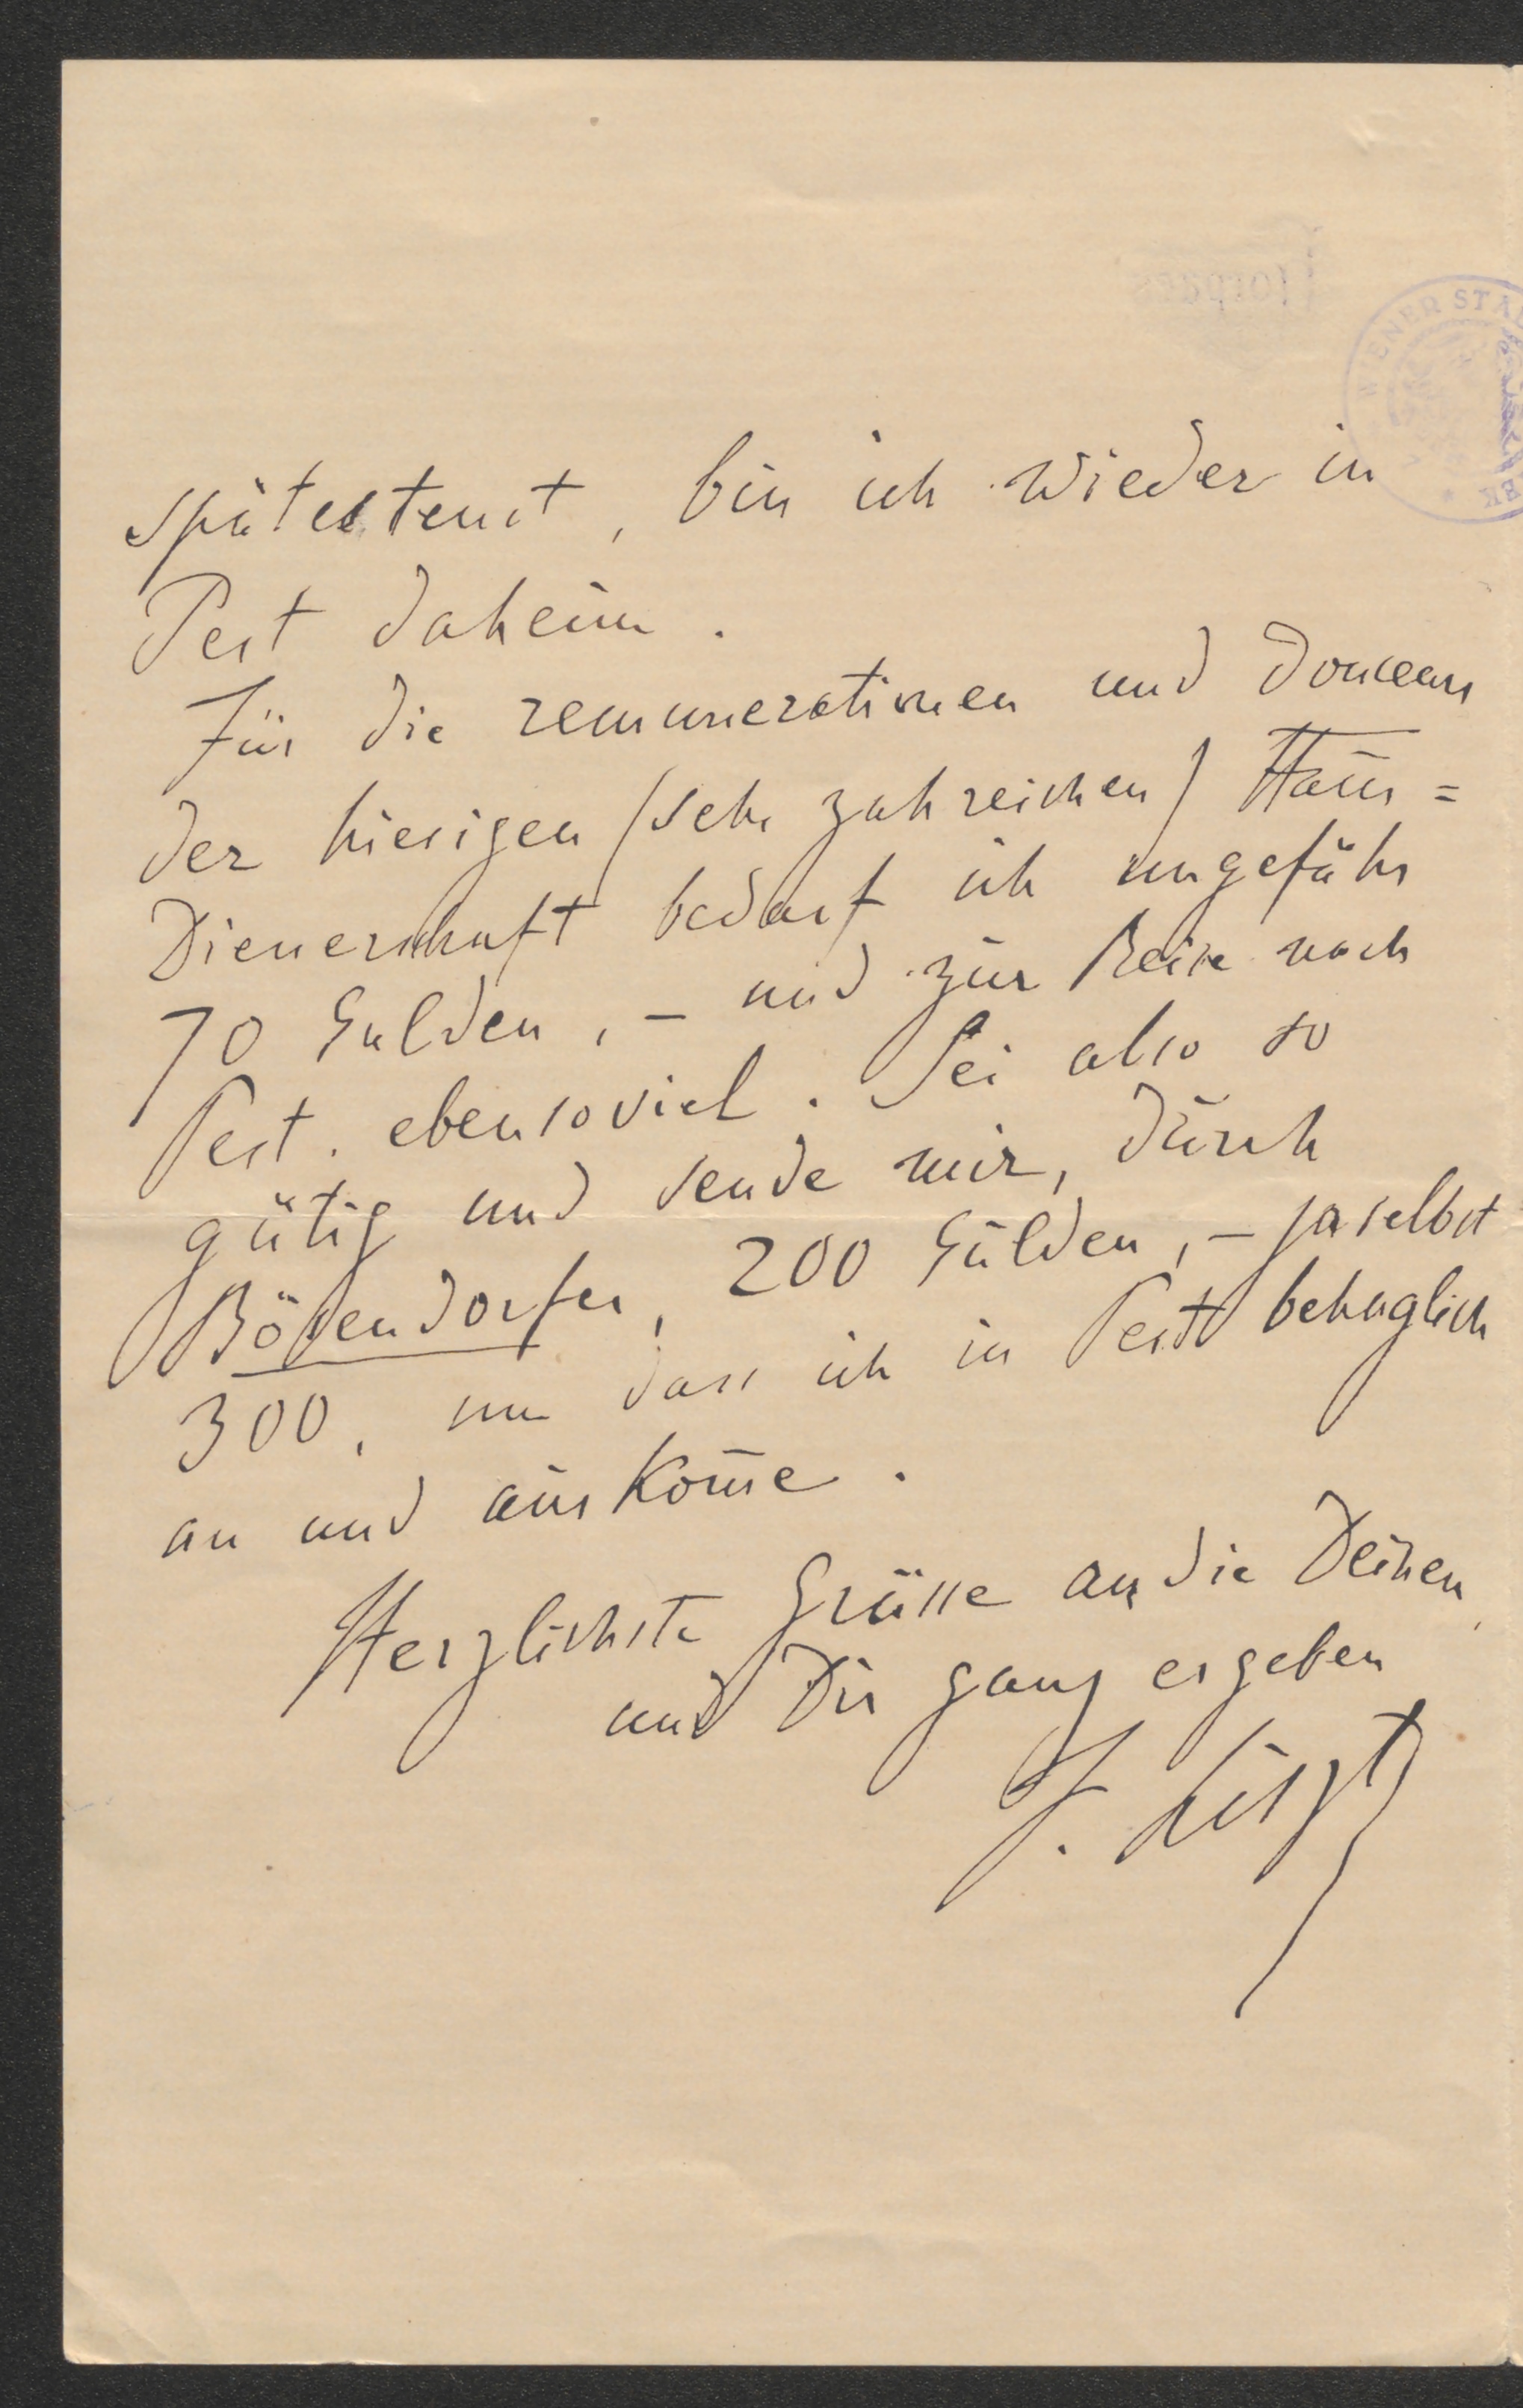 WIENER STA
BK
spätestenst, bin ich wieder in
Pest daheim.
Für die remunerationen und douceurs
der hiesigen (sehr zahreichen) Haus=
Dienerschaft bedarf ich ungefähr
70 Gulden, – und zur Reise nach
Pest. ebensoviel. Sei also so
gütig und sende mir, durch
Bösendorfer, 200 Gulden, – ja selbst
300, um dass ich in Pest behaglich
an und auskom̄e.
Herzlichste Grüsse an die Deinen
und Dir ganz ergeben
F. Liszt